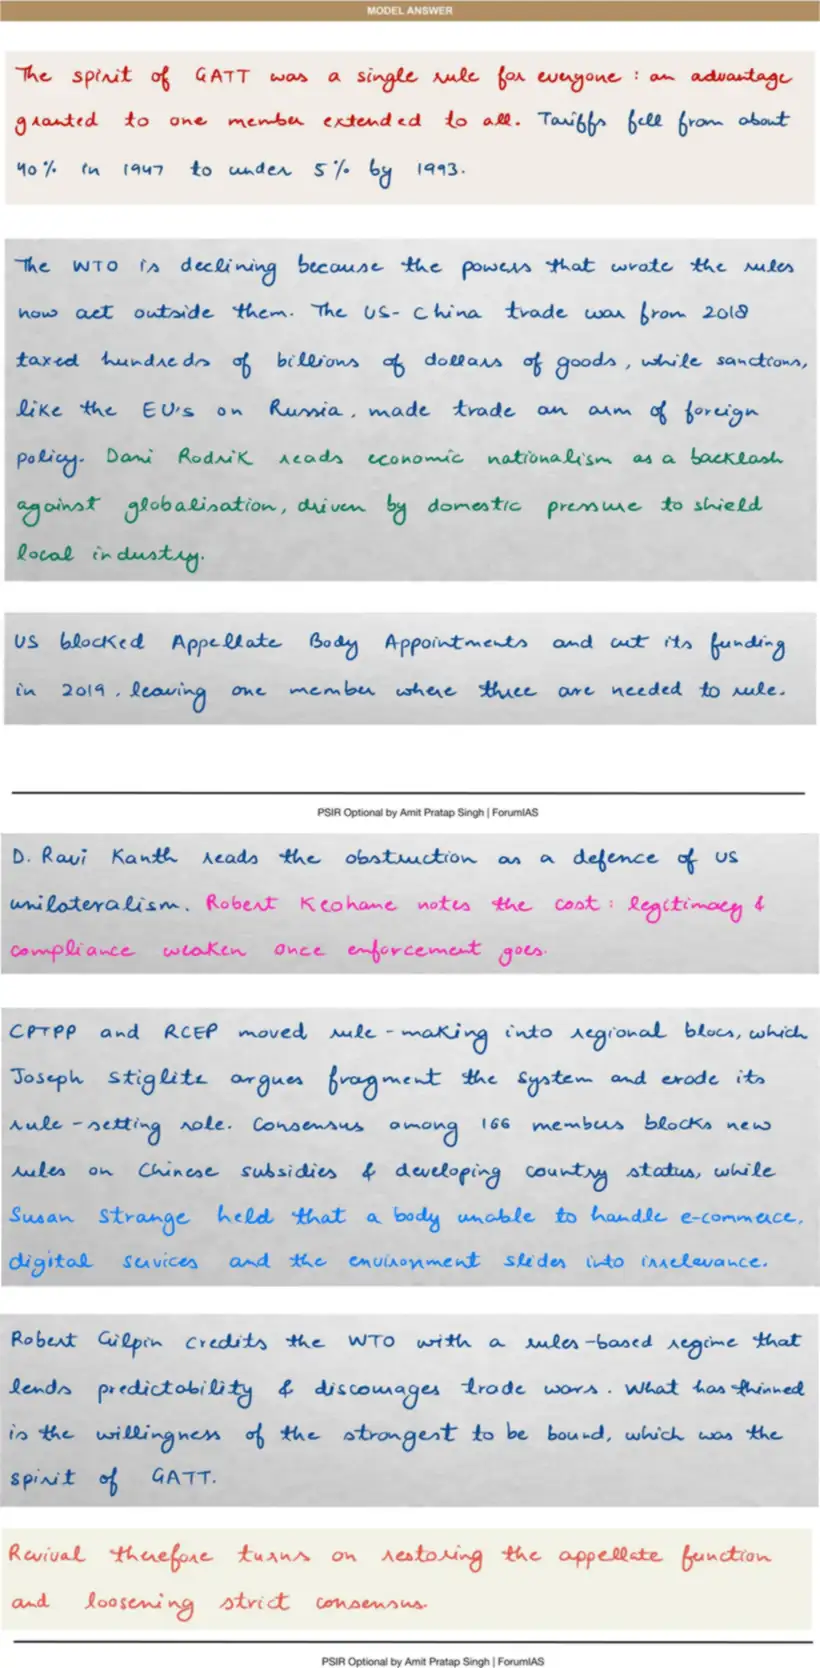 MODEL ANSWER
The spirit of GATT was a single rule for everyone : an advantage
granted to one member extended to all. Tariffs fell from about
40% in 1947 to under 5% by 1993.
The WTO is declining because the powers that wrote the rules
now act outside them. The US- China trade war from 2018
taxed hundreds of billions of dollars of goods, while sanctions,
like the EU's on Russia, made trade an arm of foreign
policy. Dani Rodrik reads economic nationalism as a backlash
against globalisation, driven by domestic pressure to shield
local industry.
US blocked Appellate Body Appointments and cut its funding
in 2019, leaving one member where three are needed to rule.
PSIR Optional by Amit Pratap Singh | ForumIAS
D. Ravi Kanth reads the obstruction as a defence of US
unilateralism. Robert Keohane notes the cost : legitimacy &
compliance weaken once enforcement goes.
CPTPP and RCEP moved rule-making into regional blocs, which
Joseph Stiglitz argues fragment the system and erode its
rule-setting role. Consensus among 166 members blocks new
rules on Chinese subsidies & developing country status, while
Susan Strange held that a body unable to handle e-commerce,
digital services and the environment slides into irrelevance.
Robert Gilpin credits the WTO with a rules-based regime that
lends predictability & discourages trade wars. What has thinned
is the willingness of the strongest to be bound, which was the
spirit of GATT.
Revival therefore turns on restoring the appellate function
and loosening strict consensus.
PSIR Optional by Amit Pratap Singh | ForumIAS